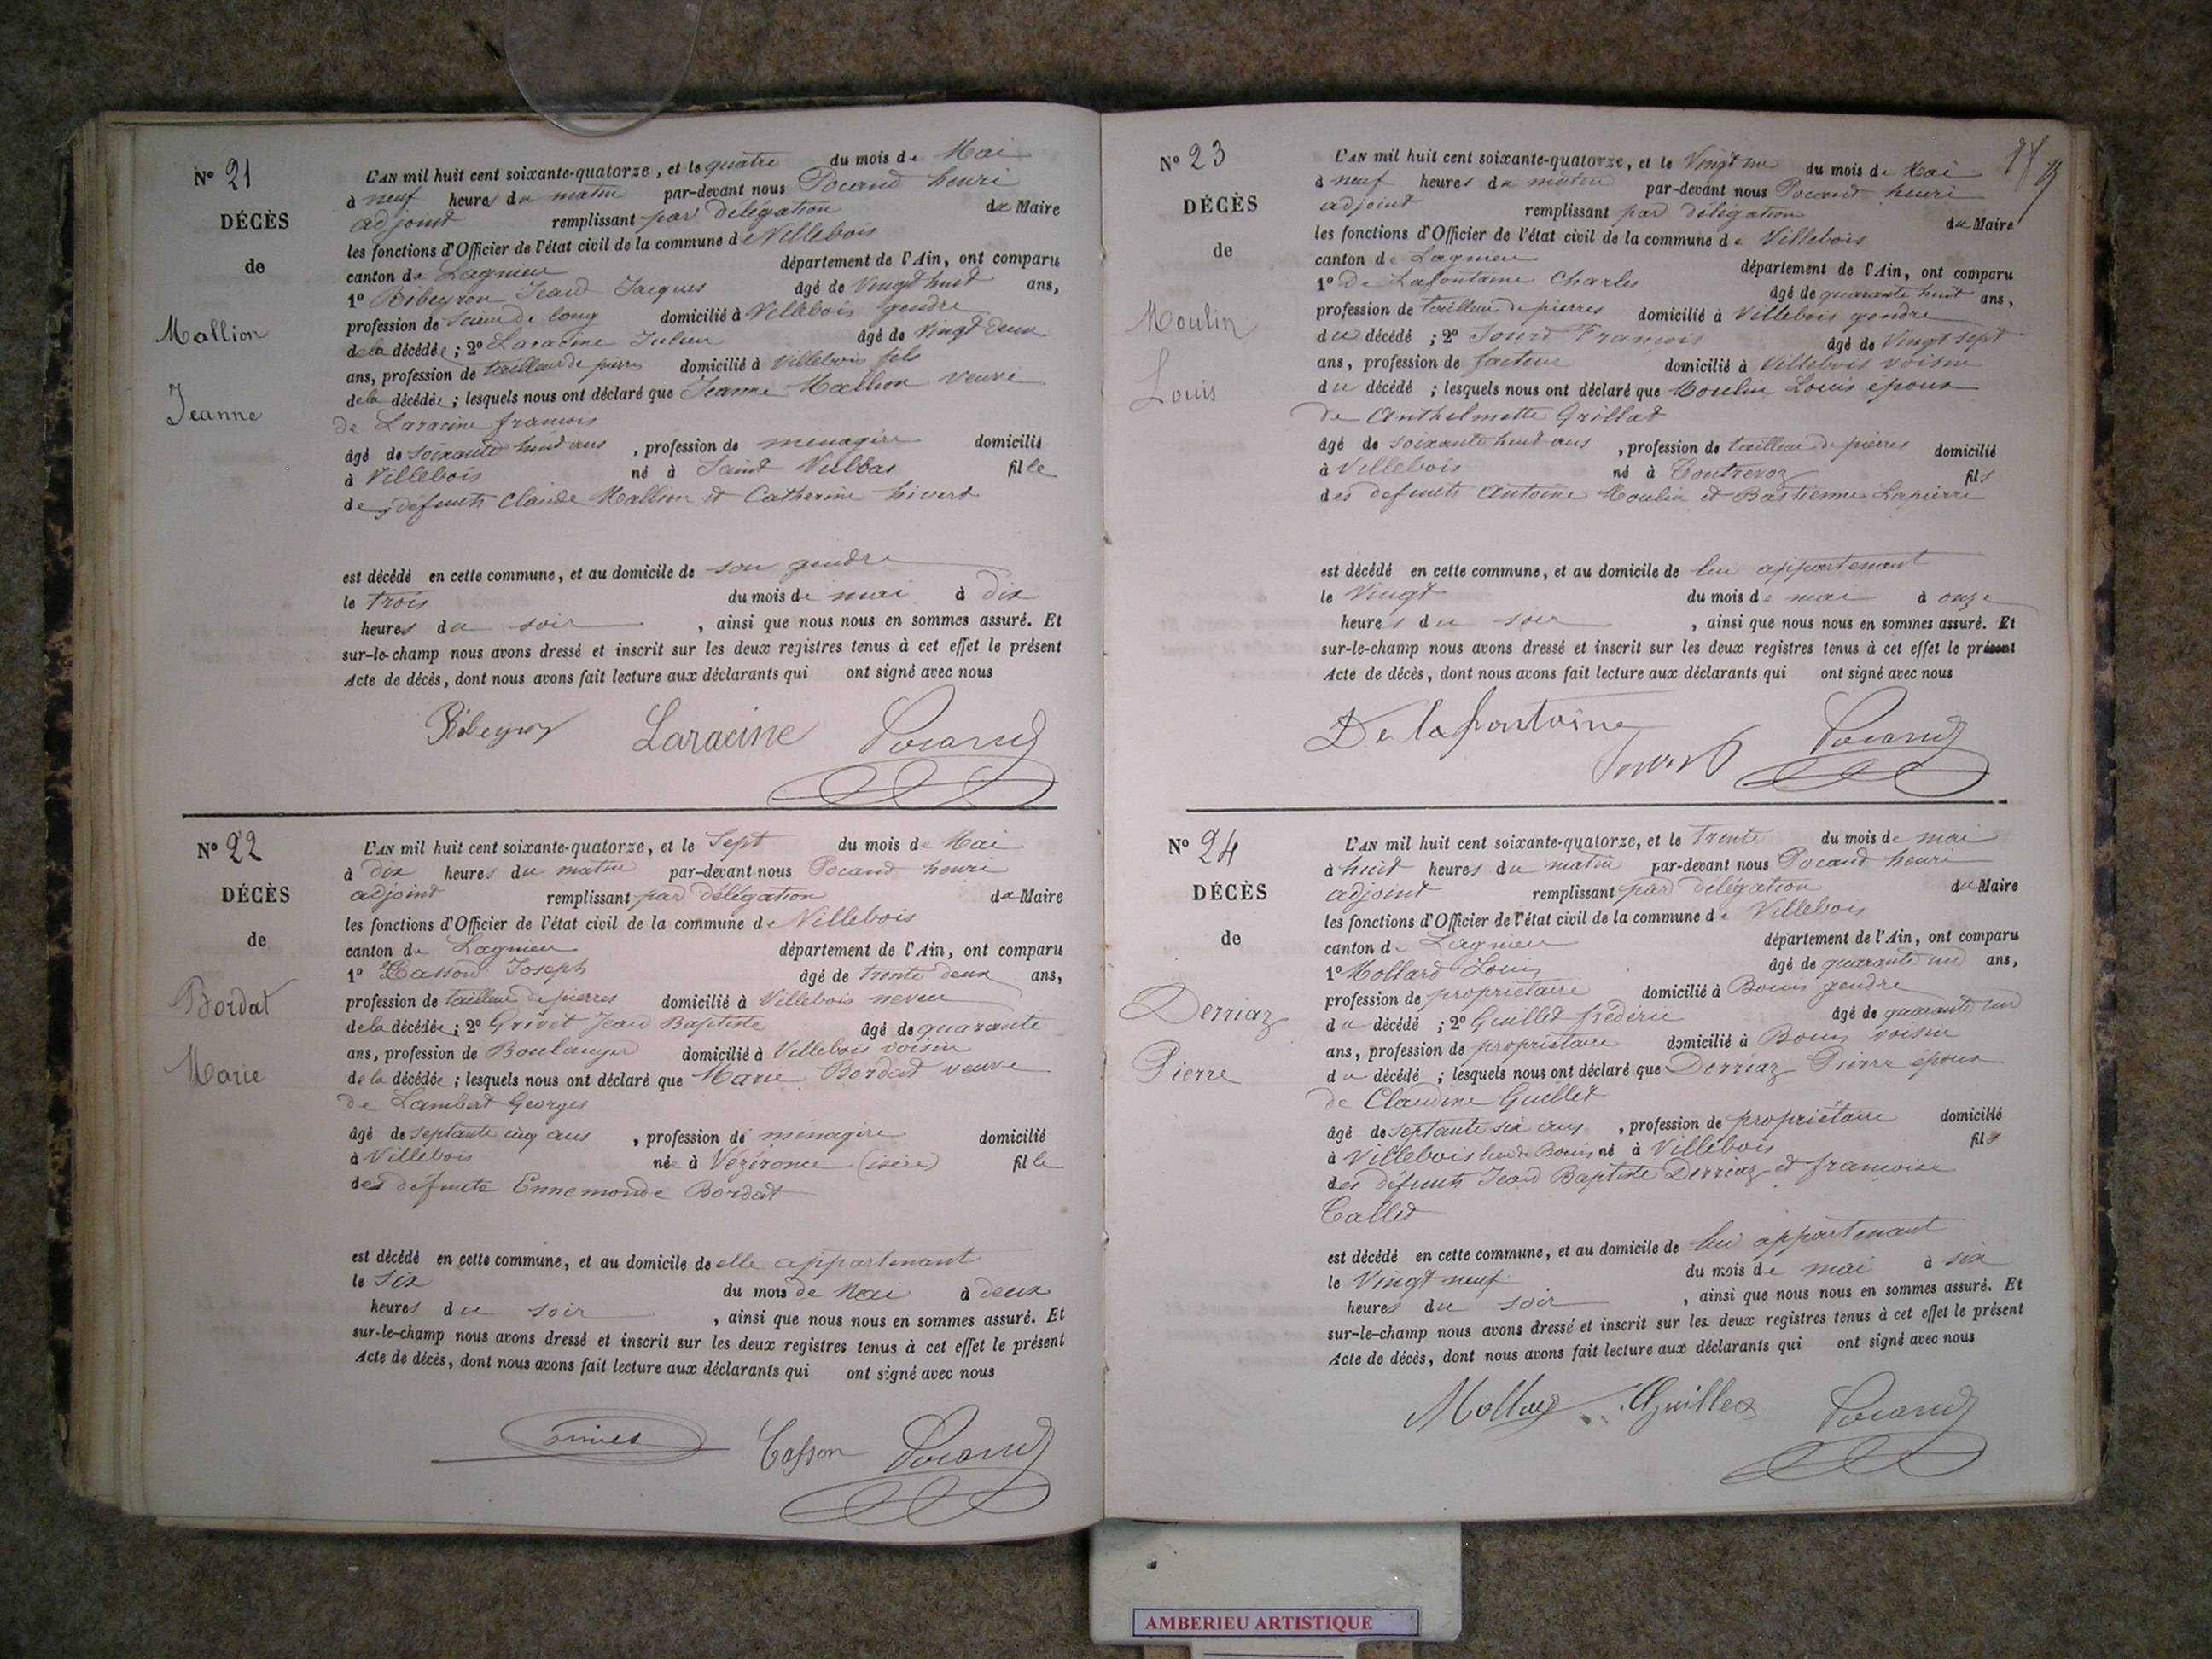 N° 21
DÉCÈS
de
Mallion
Jeanne
L'AN mil huit cent soixante-quatorze, et le quatre du mois de Mai
à neuf heures du matin par-devant nous Pocand henri
adjoint remplissant par délégation du Maire
les fonctions d'Officier de l'état civil de la commune de Villebois
canton de Lagnieu département de l'Ain, ont comparu
1° Ribeyron Jean Jacques âgé de Vingt huit ans,
profession de scieur de long domicilié à Villebois gendre
de la décédée ; 2° Laracine Julien âgé de Vingt deux
ans, profession de tailleur de pierres domicilié à Villebois fils
de la décédée ; lesquels nous ont déclaré que Jeanne Mallion veuve
de Laracine francois
âgé de soixante huit ans , profession de ménagère domicilié
à Villebois né à Saint Vulbas fille
des défunts Claude Mallion et Catherine hivert
est décédé en cette commune, et au domicile de son gendre
le trois du mois de mai à dix
heures du soir , ainsi que nous nous en sommes assuré. Et
sur-le-champ nous avons dressé et inscrit sur les deux registres tenus à cet effet le présent
Acte de décès, dont nous avons fait lecture aux déclarants qui ont signé avec nous
Ribeyron Laracine Pocand
N° 22
DÉCÈS
de
Bordat
Marie
L'AN mil huit cent soixante-quatorze, et le Sept du mois de Mai
à dix heures du matin par-devant nous Pocand henri
adjoint remplissant par délégation du Maire
les fonctions d'Officier de l'état civil de la commune de Villebois
canton de Lagnieu département de l'Ain, ont comparu
1° Casson Joseph âgé de trente deux ans,
profession de tailleur de pierres domicilié à Villebois neveu
de la décédée ; 2° Grivet Jean Baptiste âgé de quarante
ans, profession de Boulanger domicilié à Villebois voisin
de la décédée ; lesquels nous ont déclaré que Marie Bordat veuve
de Lambert Georges
âgé de septante cinq ans , profession de ménagère domicilié
à Villebois née à Vézéronce (isère) fille
des défunts Ennemonde Bordat
est décédé en cette commune, et au domicile de elle appartenant
le six du mois de Mai à deux
heures du soir , ainsi que nous nous en sommes assuré. Et
sur-le-champ nous avons dressé et inscrit sur les deux registres tenus à cet effet le présent
Acte de décès, dont nous avons fait lecture aux déclarants qui ont signé avec nous
Casson Pocand
N° 23
DÉCÈS
de
Moulin
Louis
L'AN mil huit cent soixante-quatorze, et le Vingt un du mois de Mai
à neuf heures du matin par-devant nous Pocand henri
adjoint remplissant par délégation du Maire
les fonctions d'Officier de l'état civil de la commune de Villebois
canton de Lagnieu département de l'Ain, ont comparu
1° De Lafontaine Charles âgé de quarante huit ans,
profession de tailleur de pierres domicilié à Villebois gendre
du décédé ; 2° Jourd François âgé de Vingt sept
ans, profession de facteur domicilié à Villebois voisin
du décédé ; lesquels nous ont déclaré que Moulin Louis époux
de Anthelmette Grillat
âgé de soixante huit ans , profession de tailleur de pierres domicilié
à Villebois né à Contrevoz fils
des défunts Antoine Moulin et Bastienne Lapierre
est décédé en cette commune, et au domicile de lui appartenant
le Vingt du mois de mai à onze
heures du soir , ainsi que nous nous en sommes assuré. Et
sur-le-champ nous avons dressé et inscrit sur les deux registres tenus à cet effet le présent
Acte de décès, dont nous avons fait lecture aux déclarants qui ont signé avec nous
De lafontaine Pocand
N° 24
DÉCÈS
de
Derriaz
Pierre
L'AN mil huit cent soixante-quatorze, et le trente du mois de mai
à huit heures du matin par-devant nous Pocand henri
adjoint remplissant par délégation du Maire
les fonctions d'Officier de l'état civil de la commune de Villebois
canton de Lagnieu département de l'Ain, ont comparu
1° Mollard Louis âgé de quarante un ans,
profession de propriétaire domicilié à Bouis gendre
du décédé ; 2° Guillet frédéric âgé de quarante un
ans, profession de propriétaire domicilié à Bouis voisin
du décédé ; lesquels nous ont déclaré que Derriaz Pierre époux
de Claudine Guillet
âgé de septante six ans , profession de propriétaire domicilié
à Villebois lieu de Bouis né à Villebois fils
des défunts Jean Baptiste Derriaz et françoise
Callet
est décédé en cette commune, et au domicile de lui appartenant
le Vingt neuf du mois de mai à six
heures du soir , ainsi que nous nous en sommes assuré. Et
sur-le-champ nous avons dressé et inscrit sur les deux registres tenus à cet effet le présent
Acte de décès, dont nous avons fait lecture aux déclarants qui ont signé avec nous
Mollard Guillet Pocand
AMBERIEU ARTISTIQUE